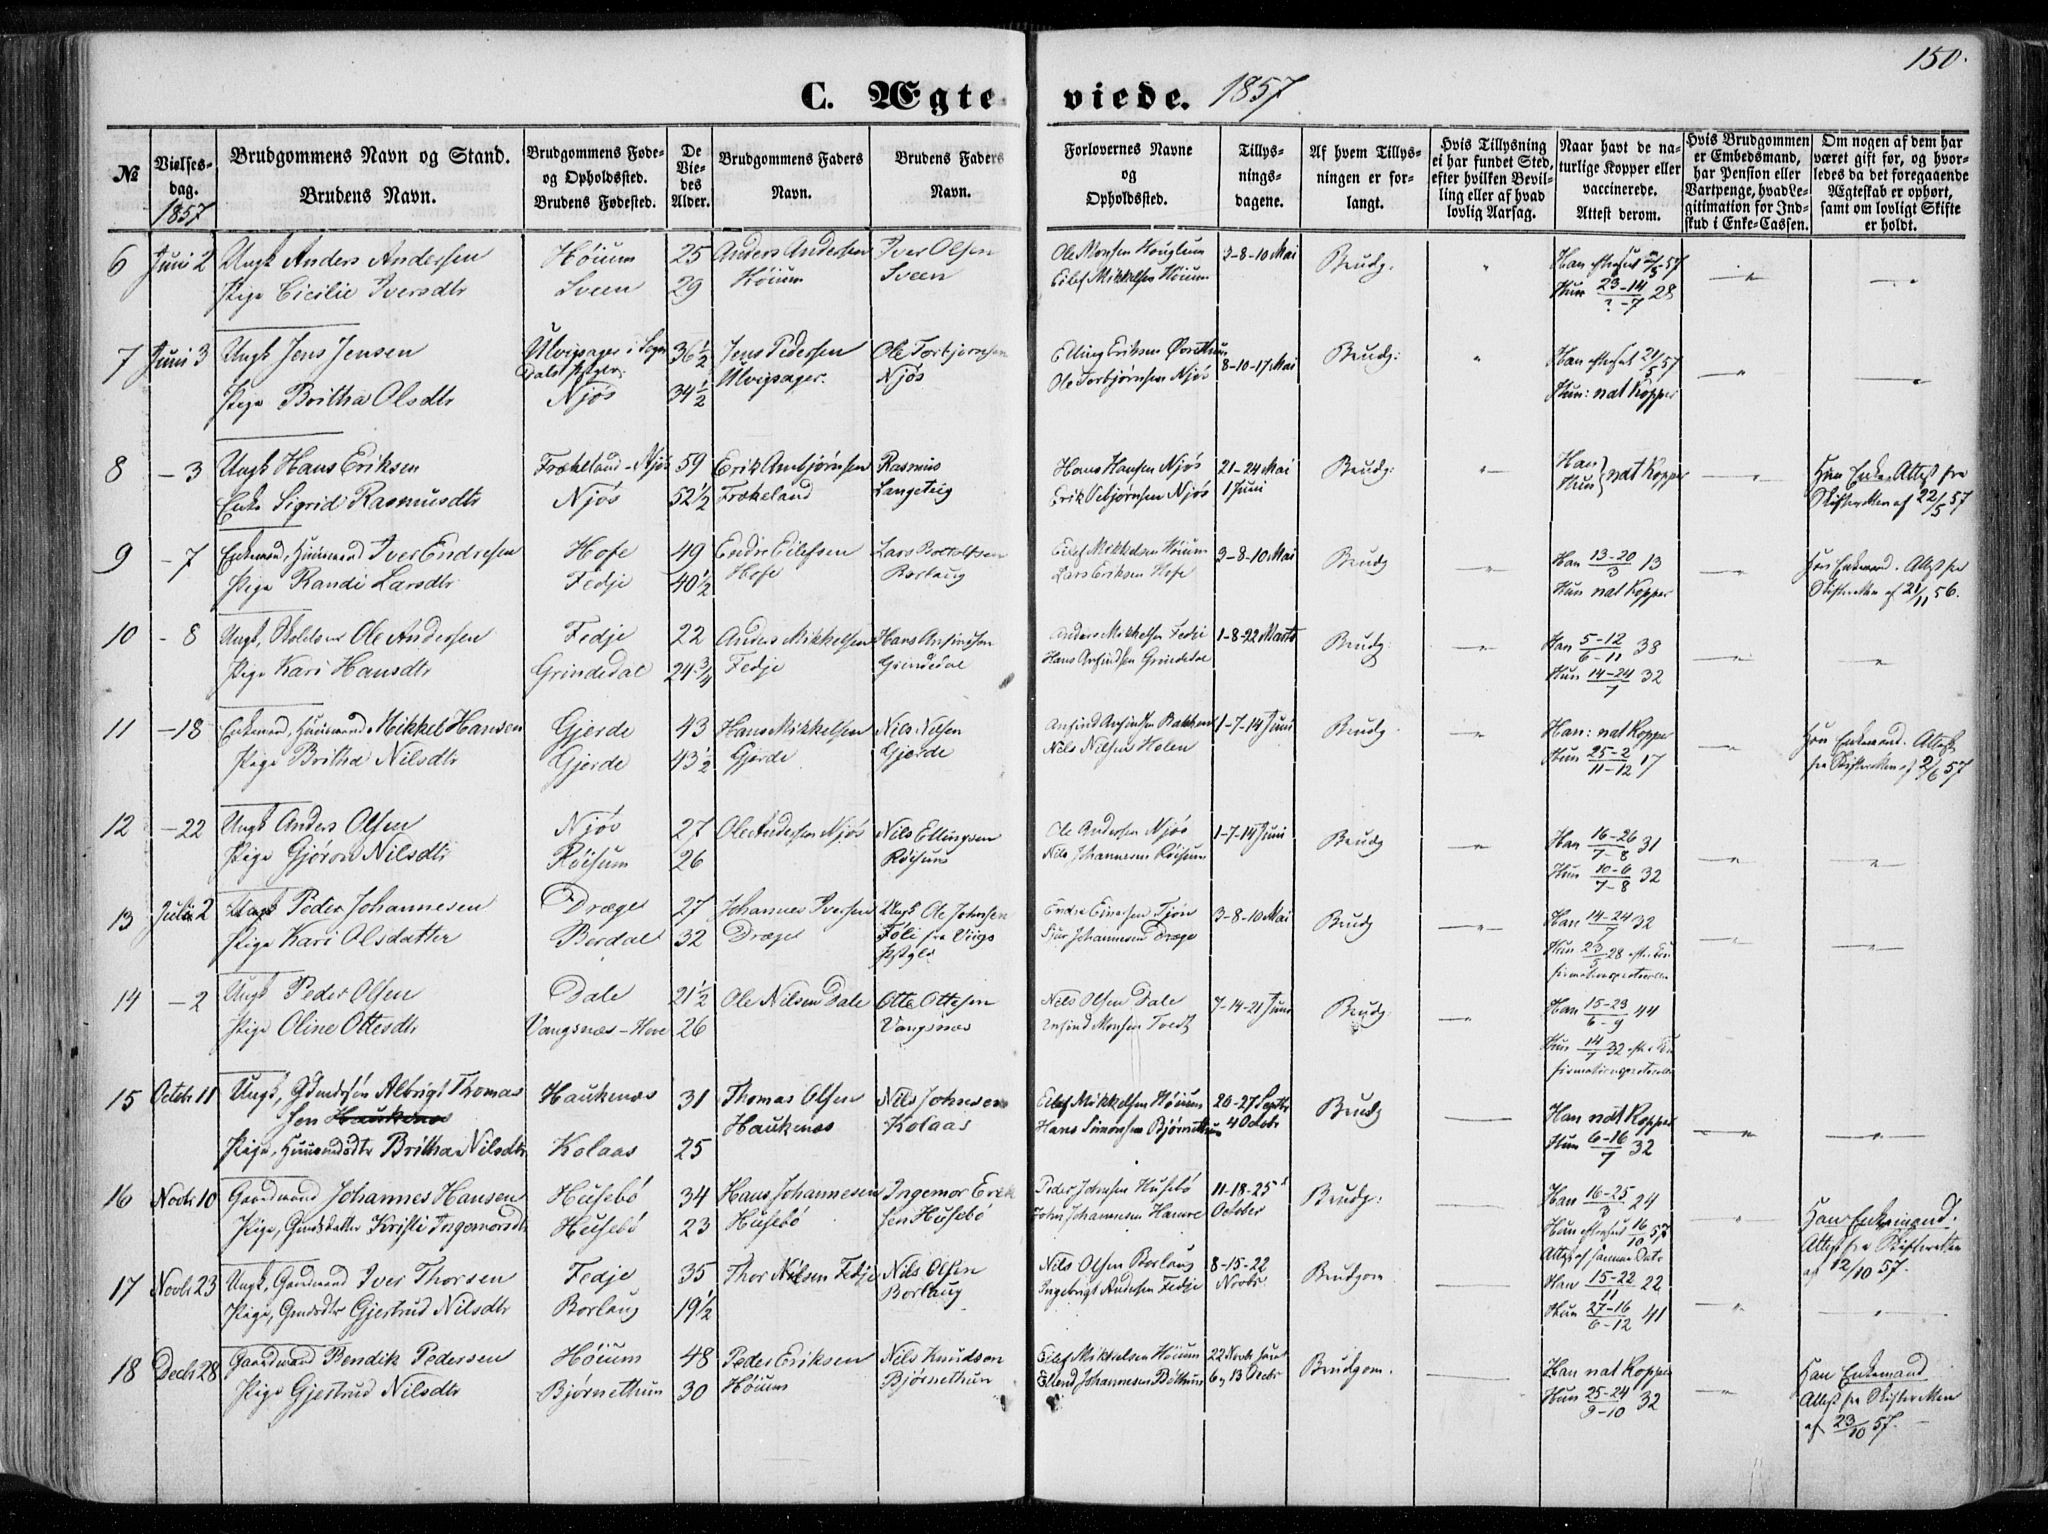 150.
C. Ægte viede. 1857
№
Vielses-
dag.
1857
Brudgommens Navn og Stand.
Brudens Navn.
Brudgommens Føde-
og Opholdssted.
Brudens Fødested.
De
Vie-
des
Alder.
Brudgommens Faders
Navn.
Brudens Faders
Navn.
Forlovernes Navne
og
Opholdssted.
Tillys-
nings-
dagene.
Af hvem Tillys-
ningen er for-
langt.
Hvis Tillysning
ei har fundet Sted,
efter hvilken Bevil-
ling eller af hvad
lovlig Aarsag.
Naar havt de na-
turlige Kopper eller
vaccinerede.
Attest derom.
Hvis Brudgommen
er Embedsmand,
har Pension eller
Vartpenge, hvad Le-
gitimation for Ind-
skud i Enke-Cassen.
Om nogen af dem har
været gift før, og hvor-
ledes da det foregaaende
Ægteskab er ophørt,
samt om lovligt Skifte
er holdt.
6 Juni 2 Ungk Anders Andersen Høium 25 Anders Andersen Iver Olsen Ole Monsen 3-8-10 Mai Brudg. " Han 57 " "
Pige Cicilie Iversdtr Sveen 29 Høium Sveen Eilef Mikkelsen Høium Hun 23-14/?-7 28
7 Juni 3 Ungk Jens Jensen Ulvigsager i Sogn 36½ Jens Pedersen Ole Torbjørnsen Elling Eriksen 8-10-17 Mai Brudg: " Han 21/5 57 " "
Dals Pstgr. Ulvigsager. Njøs Ole Torbjørnsen Njøs
Pige Britha Olsdtr Njøs 34½ Hun: nat Kopper
8 - 3 Ungk Hans Eriksen Frækeland - Njøs 59 Erik Ambjørnsen Rasmus Hans Hansen Njøs 21-24 Mai Brudg: " Han Hun } nat Kopper " Hun Enke. Attest fra
Enke Sigrid Rasmusdtr Njøs 52½ Frækeland Langeteig Erik Njøs 1 Juni Skifteretten af 22/5 57
9 - 7 Enkemand, Huusmand Iver Endresen Hofe 49 Endre Eilefsen Lars Eilef Mikkelsen Høium 3-8-10 Mai Brudg " Han 13-20/3 13 " Han Enkemand. Attest fra
Pige Randi Larsdtr Fedje 40½ Hofe Borlaug Lars Eriksen Hofe Hun nat Kopper Skifteretten af 21/11 56.
10 - 8 Ungk, Ole Andersen Fedje 22 Anders Mikkelsen Hans Anfindsen Anders Mikkelsen Fedje 1-8-22 Marts Brudg: " Han 5-12/6-11 38 " "
Pige Kari Hansdtr Grindedal 24¾ Fedje Grindedal Hans Anfindsen Grindedal Hun 14-24/7 32
11 -18 Enkemand, Huusmand Mikkel Hansen Gjerde 43 Hans Mikkelsen Nils Nilsen Anfind Anfindsen Bakken 1-7-14 Juni Brudg " Han: nat Kopper " Han Enkemand. Attest
Pige Britha Nilsdtr Gjerde 43½ Gjerde Gjerde Nils Nilsen Holen Hun 25-2/11-12 17 fra Skifteretten af 2/6 57
12 -22 Ungk Anders Olsen Njøs 27 Ole Andersen Njøs Nils Ellingsen Ole Andersen Njøs 1-7-14 Juni Brudg " Han 16-26/7-8 31 " "
Pige Gjøron Nilsdtr Røisum 26 Røisum Nils Johannesen Røisum Hun 10-6/7-8 32
13 Julii 2 Ungk Peder Johannesen Dræge 27 Johannes Iversen Ungk Ole Johnsen Endre Tjøn 3-8-10 Mai Brudg " Han 14-24/7 32 " "
Pige Kari Olsdatter Berdal 32 Dræge Føli fra Viigs Johannesen Dræge Hun 23/5 28 efter Con
Pstgld firmationsprotocollen
14 - 2 Ungk Peder Olsen Dale 21½ Ole Nilsen Dale Otte Ottesen Nils Olsen Dale 7-14-21 Juni Brudg: " Han 15-23/6-9 44
Pige Oline Ottesdtr Vangsnæs - Hove 26 Vangsnæs Anfind Monsen Tvedt Hun 14/7 32 efter Con
firmationsprotocollen
15 Octobr 11 Ungk, Gdmdsøn Albrigt Thomas Haukenæs 31 Thomas Olsen Nils Johnsen Eilef Mikkelsen Høium 20-27 Septbr Brudg Han nat Kopper " "
sen Haukenæs Haukenæs Kolaas Hans Simonsen Bjørnethun 4 Octobr
Pige, Huusmdsdtr Britha Nilsdtr Kolaas 25 Hun 6-16/7 32
16 Novbr 10 Gaardmand Johannes Hansen Husebø 34 Hans Johannesen Ingemor Erik Peder Johnsen Husebø 11-18-25 Brudg: Han 16-25/3 24 " Han Enkemand.
Pige, Gmdsdatter Kristi Ingemorsdtr Husebø 23 Husebø sen Husebø John Johannesen Hamre October Hun 16/10 57 Attest fra Skifteretten
Attest af samme Dato af 12/10 57.
17 Novbr 23 Ungk, Gaardmand Iver Thorsen Fedje 35 Thor Nilsen Fedje Nils Olsen Nils Olsen Borlaug 8-15-22 Brudgom Han 15-22/11 22 " "
Pige, Gmdsdtr Gjertrud Nilsdtr Borlaug 19½ Borlaug Ingebrigt Andersen Fedje Novbr. Hun 27-16/6-12 41
18 Decbr 28 Gaardmand Bendik Pedersen Høium 48 Peder Eriksen Nils Knudsen Eilef Mikkelsen Høium 22 Novbr samt Brudgom. Han nat Kopper " Han Enkemand
Pige Gjertrud Nilsdtr Bjørnethun 30 Høium Bjørnethun Ellend Johannesen Bøthun 6 13 Decbr Hun 25-24/9-10 32 Attest fra Skifteretten
af 23/10 57.